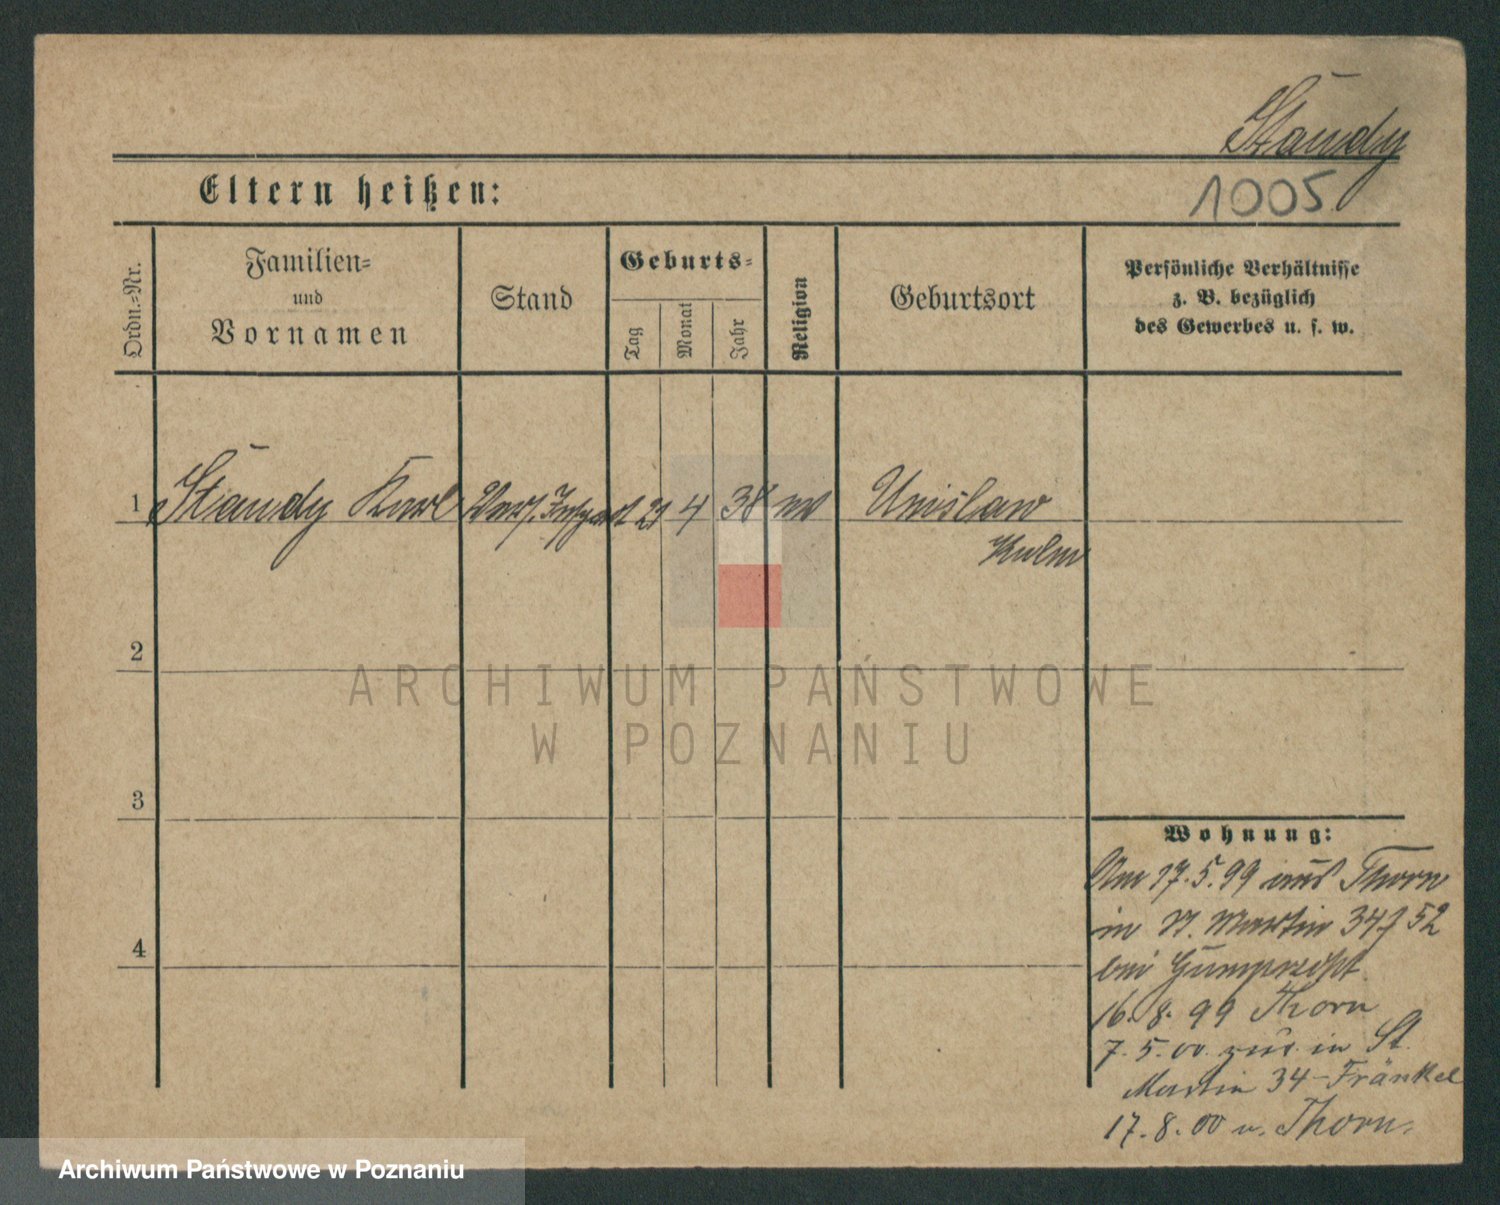 Staudy
1005
Eltern heißen:
Ordn.=Nr.
Familien=
und
Vornamen
Stand
Geburts=
Tag
Monat
Jahr
Religion
Geburtsort
Persönliche Verhältnisse
z. B. bezüglich
des Gewerbes u. s. w.
1 Staudy Karl 21 4 38 Unislaw
Kulm
2
ARCHIWUM PAŃSTWOWE
W POZNANIU
3
Wohnung:
Am 17.5.99 aus Thorn
in St. Martin 34 52
bei Gumprecht
4
16.8.99 Thorn
7.5.00 zur. in St.
Martin 34 - Fränkel
17.8.00 n. Thorn.
Archiwum Państwowe w Poznaniu